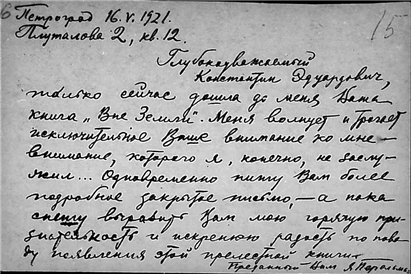 6 Петроград 16.V.1921.
Плуталова 2, кв. 12.
15
Глубокоуважаемый
Константин Эдуардович,
только сейчас дошла до меня Ваша
книга „Вне Земли". Меня волнует и трогает
исключительное Ваше внимание ко мне –
внимание, которого я, конечно, не заслу-
жил... Одновременно пишу Вам более
подробное закрытое письмо, – а пока
спешу выразить Вам мою горячую при-
знательность и искреннюю радость по пово-
ду появления этой прелестной книги.
Преданный Вам Я. Перельман